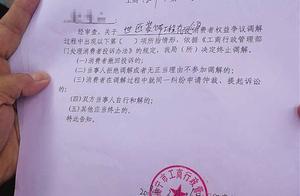 经审查，关于 消费者权益争议调解
过程中出现以下第（ ）项所指情形，依据《工商行政管理部
门处理消费者投诉办法》的规定，我局（所）决定终止调解。
(一)消费者撤回投诉的；
(二)当事人拒绝调解或者无正当理由不参加调解的；
(三)消费者在调解过程中就同一纠纷申请仲裁、提起诉讼
的；
(四)双方当事人自行和解的；
(五)其他应当终止的。
特此告知。
宁市工商行政